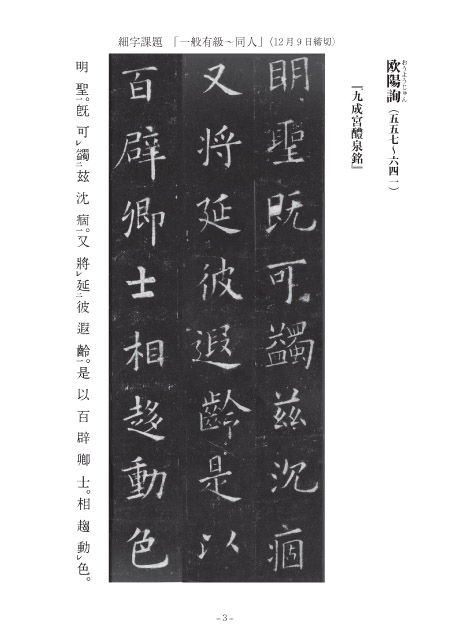 細字課題 「一般有級～同人」(12月9日締切)
欧陽詢(五五七～六四一)
おうようじゅん
『九成宮醴泉銘』
明聖既可蠲茲沈痼
又将延彼遐齡是以
百辟卿士相趍動色
明聖。旣可レ蠲二茲沈痼一。又將レ延二彼遐齡一。是以百辟卿士。相趨動レ色。
－3－